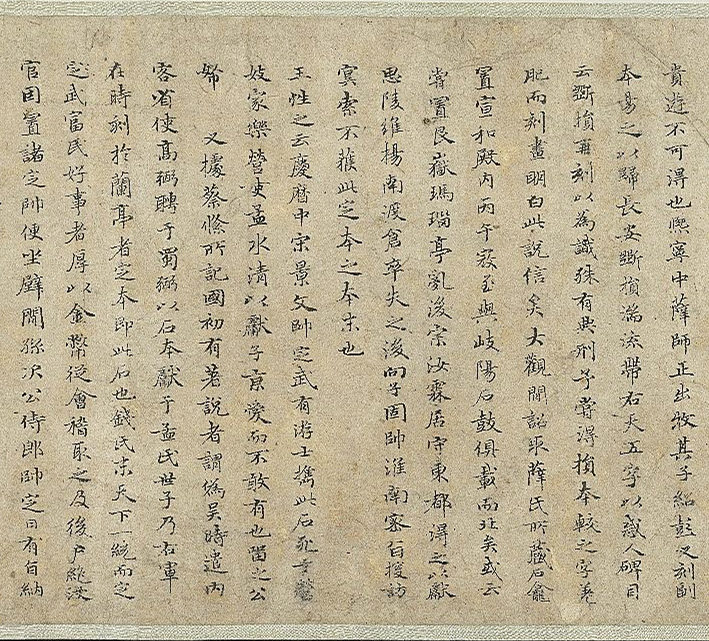 貴遊不可得也熈寧中薛師正出牧其子紹彭又刻副
本易之以歸長安斷損湍流帶右天五字以惑人碑目
云斷損再刻以為識殊有典刑予嘗得損本較之字差
肥而刻畫明白此說信矣大觀間詔取薛氏所藏石龕
置宣和殿内丙午寇至與岐陽石鼓俱載而北矣或云
嘗置艮嶽瑪瑙亭亂後宗汝霖居守東都得之以獻
思陵維揚南渡倉卒失之後向子固帥淮南密旨搜訪
冥索不獲此定本之本末也
王性之云慶曆中宋景文帥定武有游士携此石死于營
妓家樂營使孟水清以獻子京愛而不敢有也留之公
帑 又據蔡絛所記國初有著說者謂為吳時遣内
客省使高弼聘于蜀弼以石本獻于孟氏世子乃右軍
在時刻於蘭亭者定本即此石也錢氏末天下一統而之
定武富民好事者厚以金幣從會稽取之及後户絶沒
官因置諸定帥便坐壁間孫次公侍郎帥定日有旨納